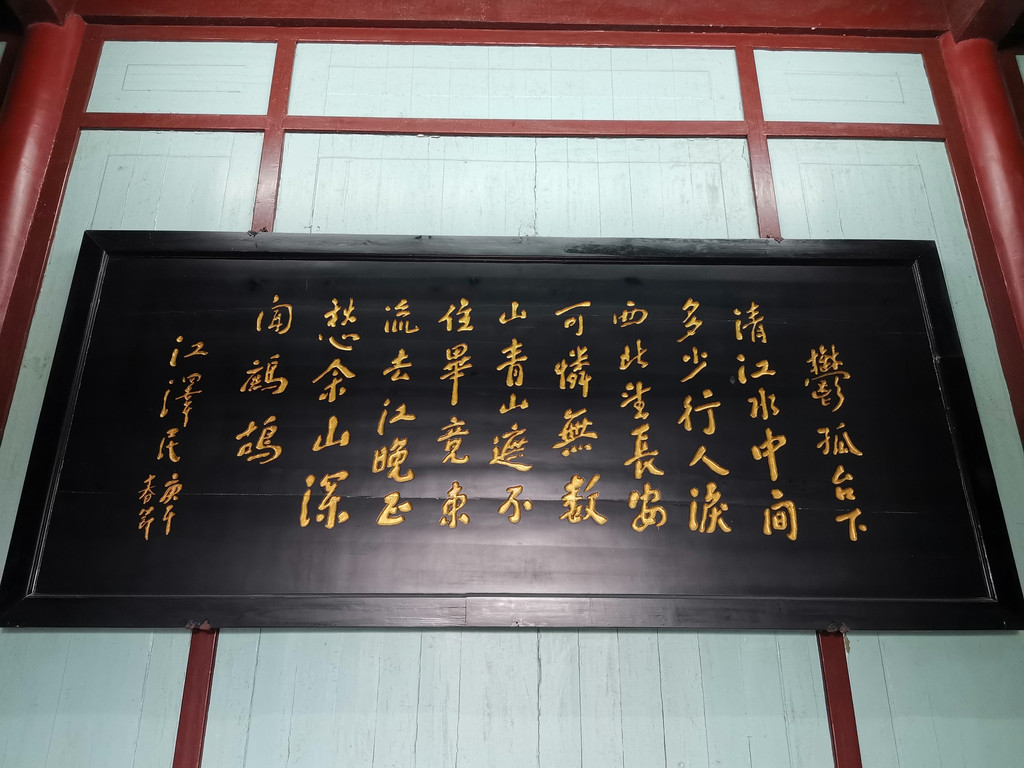 鬱孤台下
清江水中間
多少行人淚
西北望長安
可憐無數
山青山遮不
住畢竟東
流去江晚正
愁余山深
聞鷓鴣
江澤民
庚辰
春節